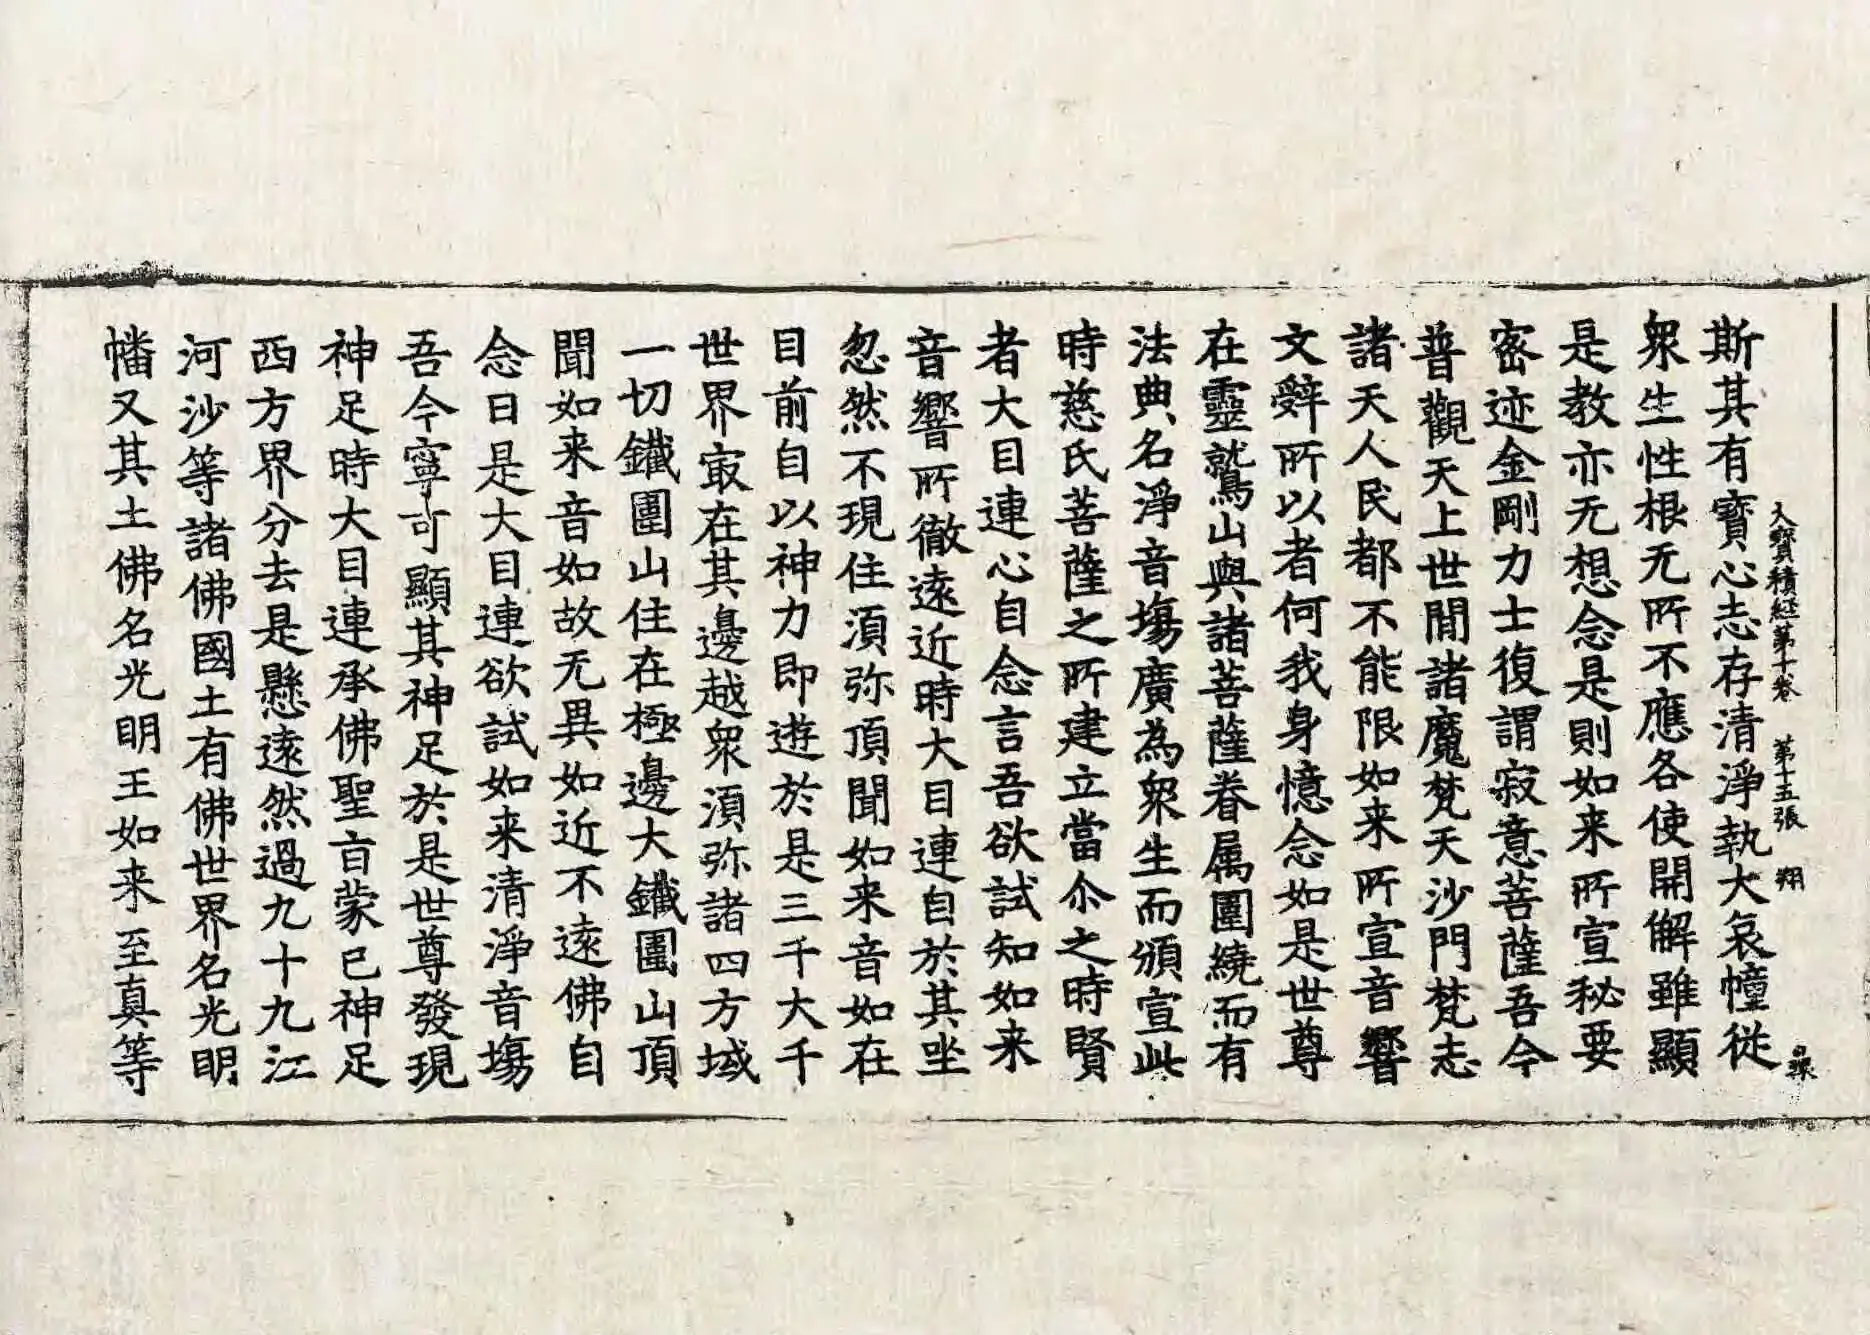 大寶積経苐十卷 苐十五張 翔
斯其有寶心志存清淨執大哀幢従
衆生性根无所不應各使開解雖顯
是教亦无想念是則如来所宣秘要
密迹金剛力士復謂寂意菩薩吾今
普觀天上世閒諸魔梵天沙門梵志
諸天人民都不能限如来所宣音響
文辝所以者何我身憶念如是世尊
在靈鷲山與諸菩薩眷属圍繞而有
法典名淨音塲廣為衆生而頒宣此
時慈氏菩薩之所建立當尒之時賢
者大目連心自念言吾欲試知如来
音響所徹逺近時大目連自於其坐
忽然不現住湏弥頂聞如来音如在
目前自以神力即遊於是三千大千
世界㝡在其邊越衆湏弥諸四方域
一切鐵圍山住在極邊大鐵圍山頂
聞如来音如故无異如近不逺佛自
念曰是大目連欲試如来清淨音塲
吾今寧可顯其神足於是世尊發現
神足時大目連承佛聖㫖蒙已神足
西方界分去是懸逺然過九十九江
河沙等諸佛國土有佛世界名光明
幡又其土佛名光明王如来至真等